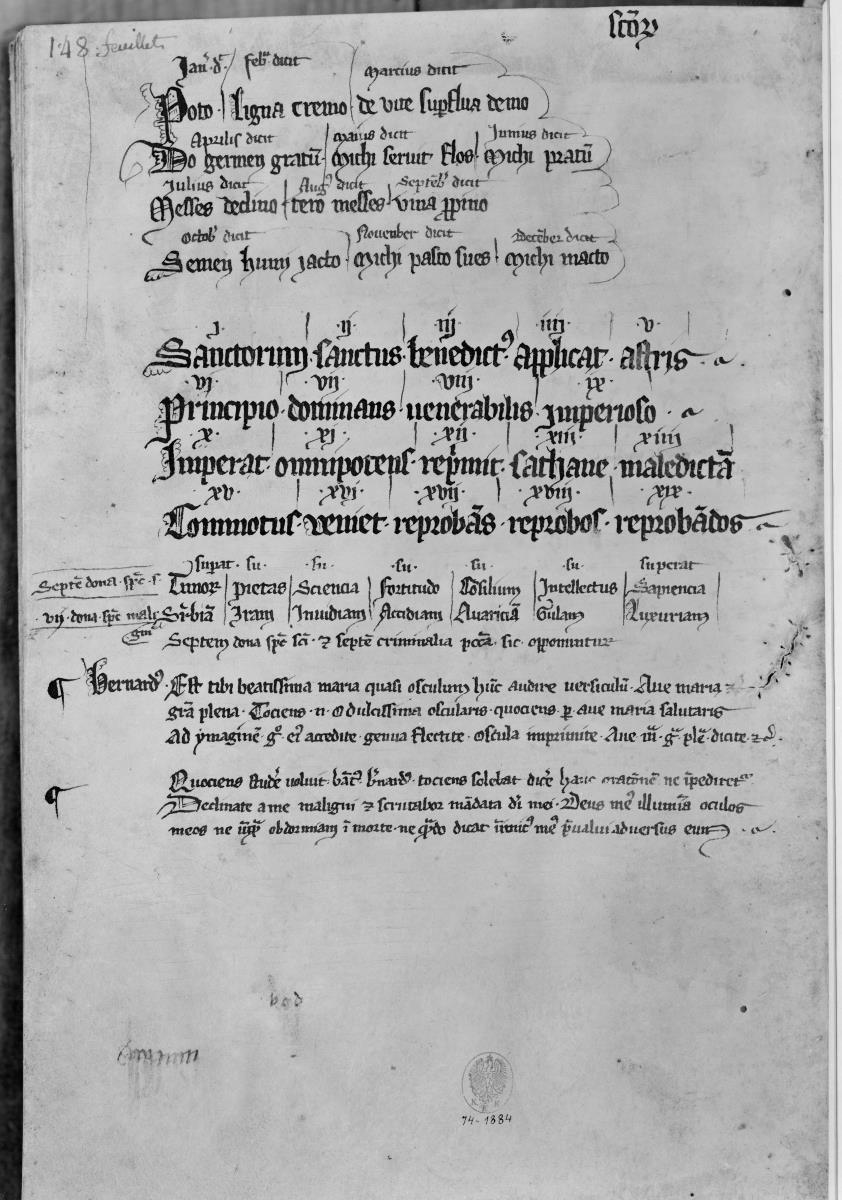 148 feuillets
sc̄oꝝ
Jan᷒ d͛ feb᷒ dicit Marcius dicit
Poto · ligna cremo · de vite sup̄flua demo
Aprilis dicit Maius dicit Junius dicit
Do germen gratū · Michi seruit flos · Michi pratū
Julius dicit Aug᷒ dicit Septēb᷒ dicit
Messes declino · tero messes · vina ꝓpino
Octob᷒ dicit Nouenber dicit Decēber dicit
Semen humi jacto · Michi pasco sues · Michi macto
·I· ·ij· ·iij· ·iiij· ·v·
Sanctorum · sanctus · benedictꝰ · applicat · astris
·vj· ·vij· ·viij· ·ix·
Principio · dominans · uenerabilis · Jmperioso ·
·x· ·xj· ·xij· ·xiij· xiiij
Jmperat · omnipotens · rep̍mit · sathane · maledictā
·xv· ·xvj· ·xvij· ·xviij· ·xix·
Commotus · veniet · reprobās · reprobos · reprobādos
supat · su· su· su· su· su· superat
Septē dona · sp̄c · s· Timor pietas Sciencia fortitudo Cōsilium Intellectus Sapiencia
·vij· dona · sp̄c mali· Suꝑbiā Iram Inuidiam Accidiam Auariciā Gulam Luxuriam
Septem dona sp̄c sc̄i · ⁊ septē criminalia pcc̄a · sic · opponuntur
¶ Bernardꝰ · Est tibi beatissima maria quasi osculum hūc audire uersiculū · Aue maria
gr̄a plena · Tociens · n · O dulcissima oscularis · quociens · ꝑ aue maria salutaris
Ad ymaginē · gͦ · eiꝰ accedite · genua flectite · Oscula imprimite · Aue m̄ · gr̄ · plē · dicite · ⁊ c̄ ·
¶ Quociens studē᷒ uoluit · bāt̄ꝰ · b᷒nardꝰ · tociens solebat dicē᷒ hanc oratōnē ne īpediretᷣ
Declinate a me maligni ⁊ scrutabor mādata dī mei · Deus meꝰ illumīa oculos
meos ne ūqꝫ obdormiam ī morte · ne qn̄do dicat inīmicꝰ meꝰ p̄ualui aduersus eum
74-1884